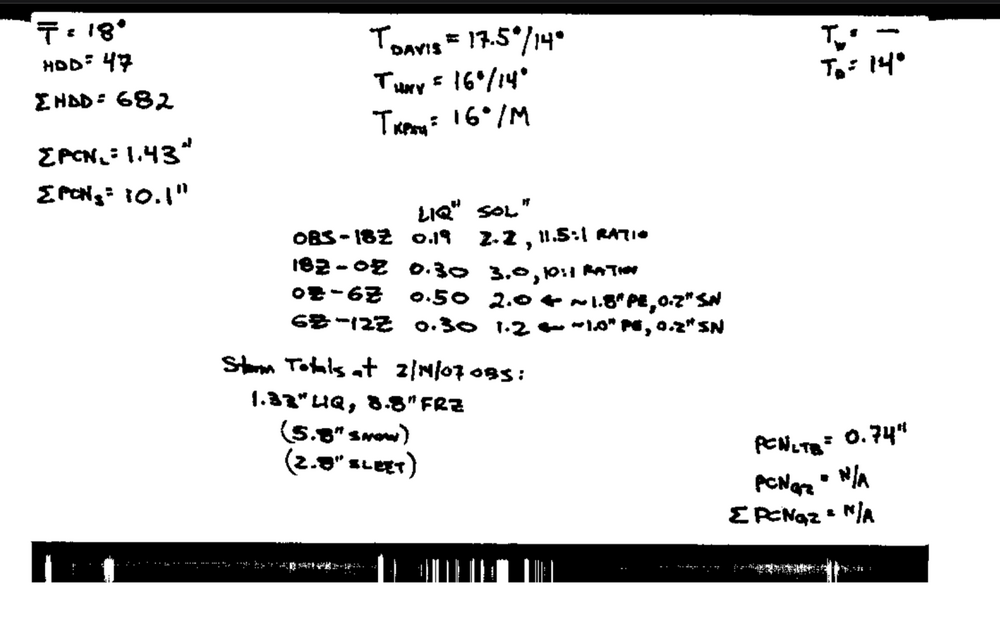 T̅ = 18°
HDD = 47
ΣHDD = 682
ΣPCN_L = 1.43"
ΣPCN_S = 10.1"
T_DAVIS = 17.5°/14°
T_UNV = 16°/14°
T_KPSU = 16°/M
T_W = —
T_D = 14°
LIQ" SOL"
OBS-18Z 0.19 2.2, 11.5:1 RATIO
18Z-0Z 0.30 3.0, 10:1 RATIO
0Z-6Z 0.50 2.0 ← ~1.8" PE, 0.2" SN
6Z-12Z 0.30 1.2 ← ~1.0" PE, 0.2" SN
Storm Totals at 2/14/07 OBS:
LIQ, 8.8" FRZ
(5.8" SNOW)
(2.8" SLEET)
PCN_LTB = 0.74"
PCN_QZ = N/A
Σ PCN_QZ = N/A